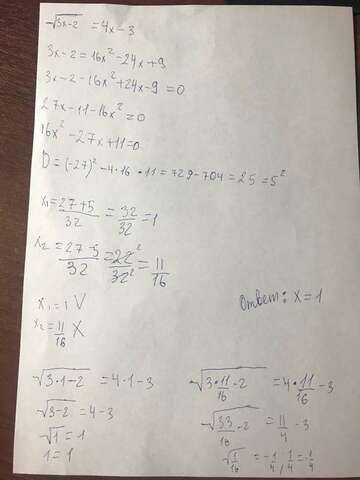 √3x-2 = 4x-3
3x-2 = 16x²-24x+9
3x-2-16x²+24x-9 = 0
27x-11-16x² = 0
16x²-27x+11=0
D=(-27)²-4·16·11=729-704=25=5²
x₁=27+5/32=32/32=1
x₂=27-5/32=22/32=11/16
x₁=1 V
x₂=11/16 X
Ответ: x=1
√3·1-2 = 4·1-3
√3-2 = 4-3
√1 = 1
1=1
√3·11/16-2 = 4·11/16-3
√33/16-2 = 11/4-3
√1/16 = -1/4, 1/4=-1/4